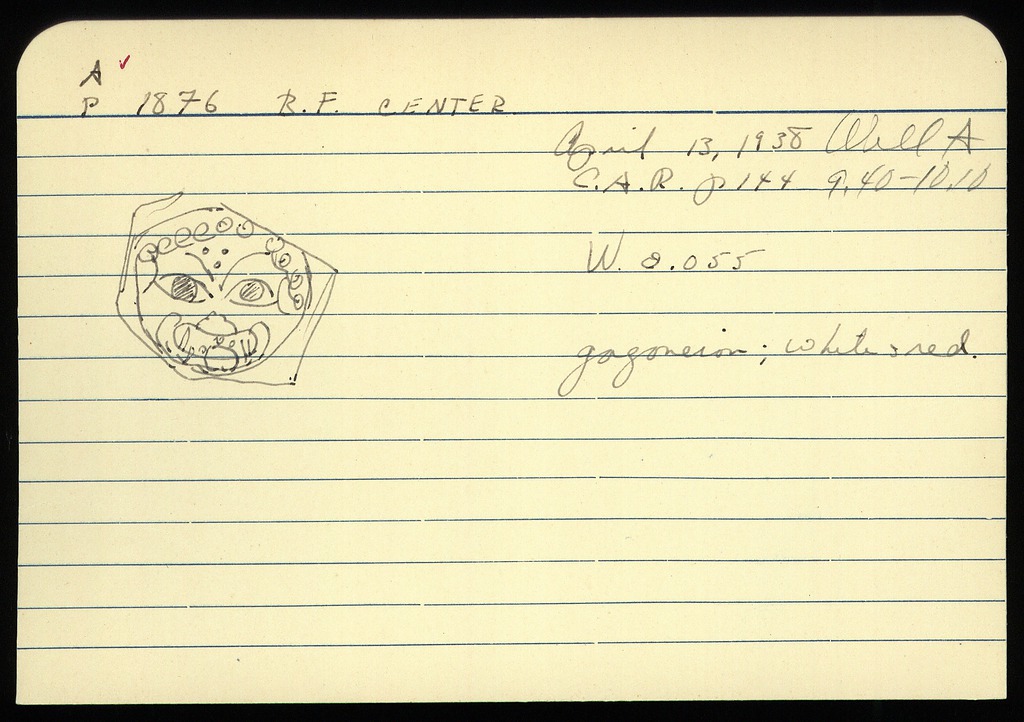 A ✓
P 1876 R.F. CENTER
April 13, 1938 Well A
C.A.R. p 144 9.40-10.10
W. 0.055
gogoneion; white & red.